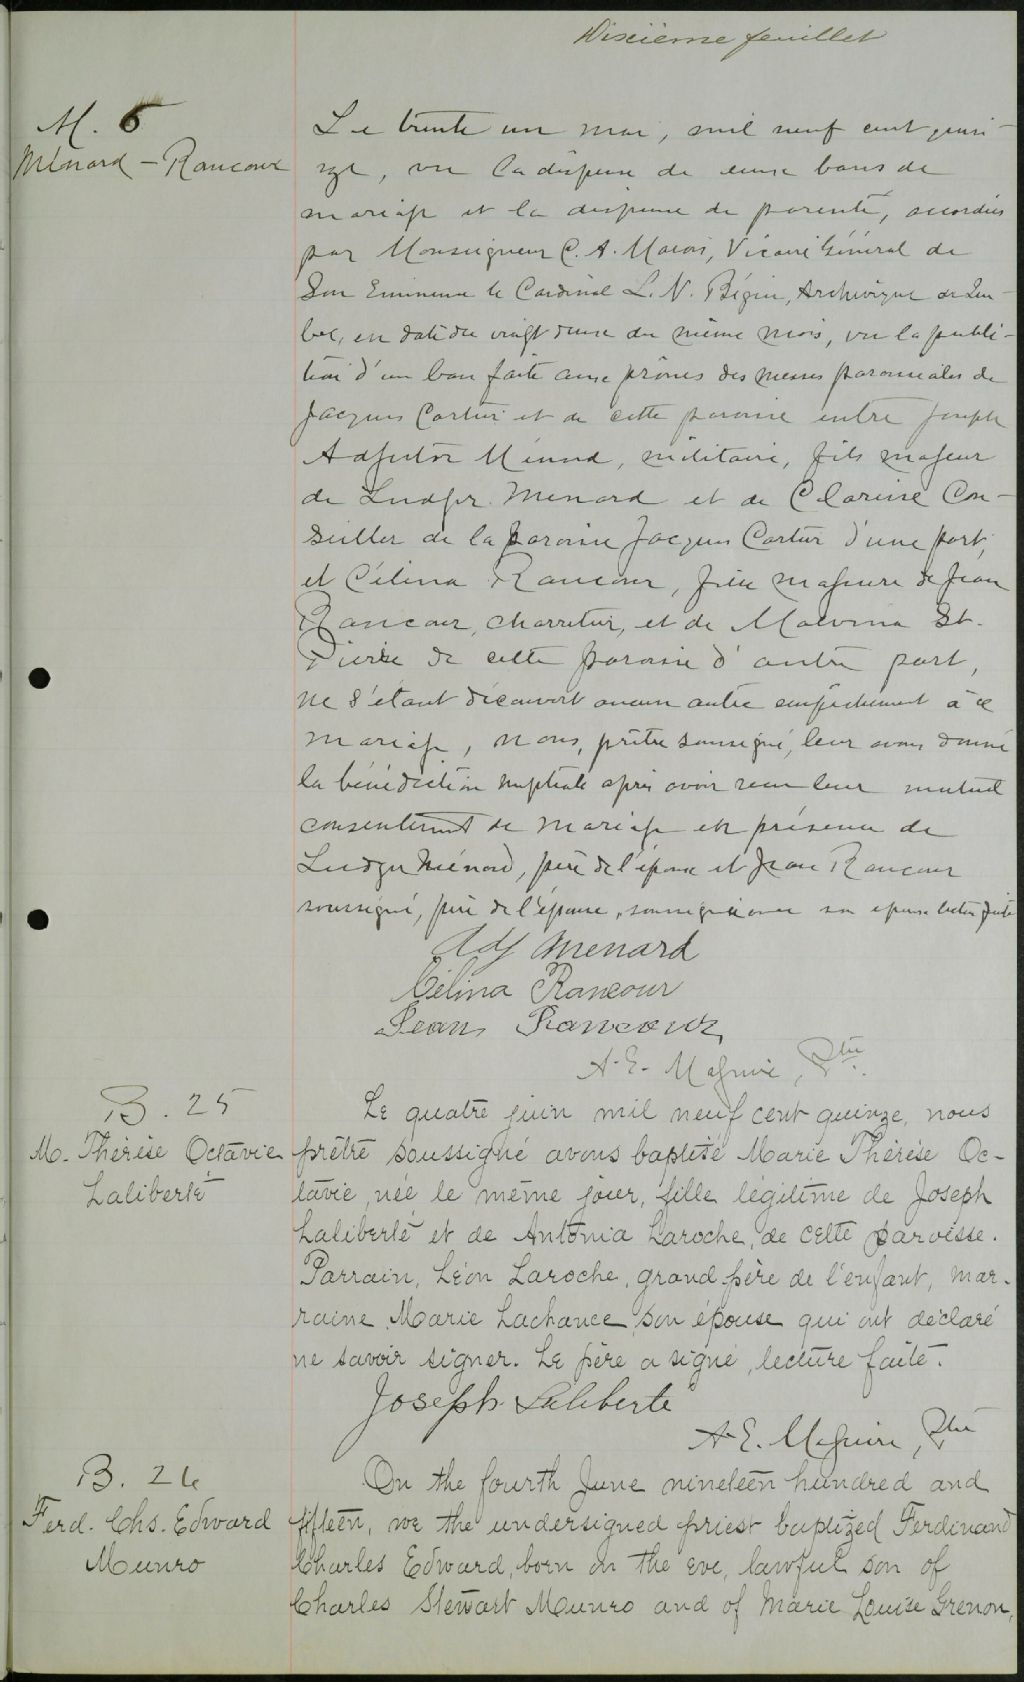 Dixième feuillet
M. 6
Ménard – Rancour
Le trente un mai, mil neuf cent quin-
ze, vu la dispense de deux bans de
mariage et la dispense de parenté, accordées
par Monseigneur C. A. Marois, Vicaire Général de
Son Eminence le Cardinal L. N. Bégin, Archevêque de Qué-
bec, en date du vingt deux du même mois, vu la publi-
tion d'un ban faite aux prônes des messes paroissiales de
Jacques Cartier et de cette paroisse entre Joseph
Adjutor Ménard, militaire, fils majeur
de Ludger Menard et de Clarisse Con-
seiller de la paroisse Jacques Cartier d'une part,
et Célina Rancour, fille majeure de Jean
Rancour, charretier, et de Malvina St.
Pierre de cette paroisse d'autre part,
ne s'étant découvert aucun autre empêchement à ce
mariage, nous, prêtre soussigné, leur avons donné
la bénédiction nuptiale après avoir reçu leur mutuel
consentement de mariage en présence de
Ludger Ménard, père de l'époux et Jean Rancour
soussigné, père de l'épouse, soussignée avec son époux lecture faite
Adj Menard
Célina Rancour
Jean Rancour
A. E. Maguire, Ptre.
B. 25
M. Thérèse Octavie
Laliberté
Le quatre juin mil neuf cent quinze, nous
prêtre soussigné avons baptisé Marie Thérèse Oc-
tavie, née le même jour, fille légitime de Joseph
Laliberté et de Antonia Laroche, de cette paroisse.
Parrain, Léon Laroche, grand père de l'enfant, mar-
raine Marie Lachance, son épouse qui ont déclaré
ne savoir signer. Le père a signé, lecture faite.
Joseph Laliberte
A. E. Maguire, Ptre
B. 26
Ferd. Chs. Edward
Munro
On the fourth June nineteen hundred and
fifteen, we the undersigned priest baptized Ferdinand
Charles Edward, born on the eve, lawful son of
Charles Stewart Munro and of Marie Louise Grenon,